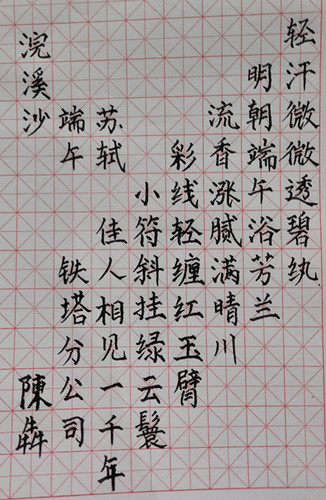 轻汗微微透碧纨
明朝端午浴芳兰
流香涨腻满晴川
彩线轻缠红玉臂
小符斜挂绿云鬟
苏轼 佳人相见一千年
端午 铁塔分公司
浣溪沙 陳犇